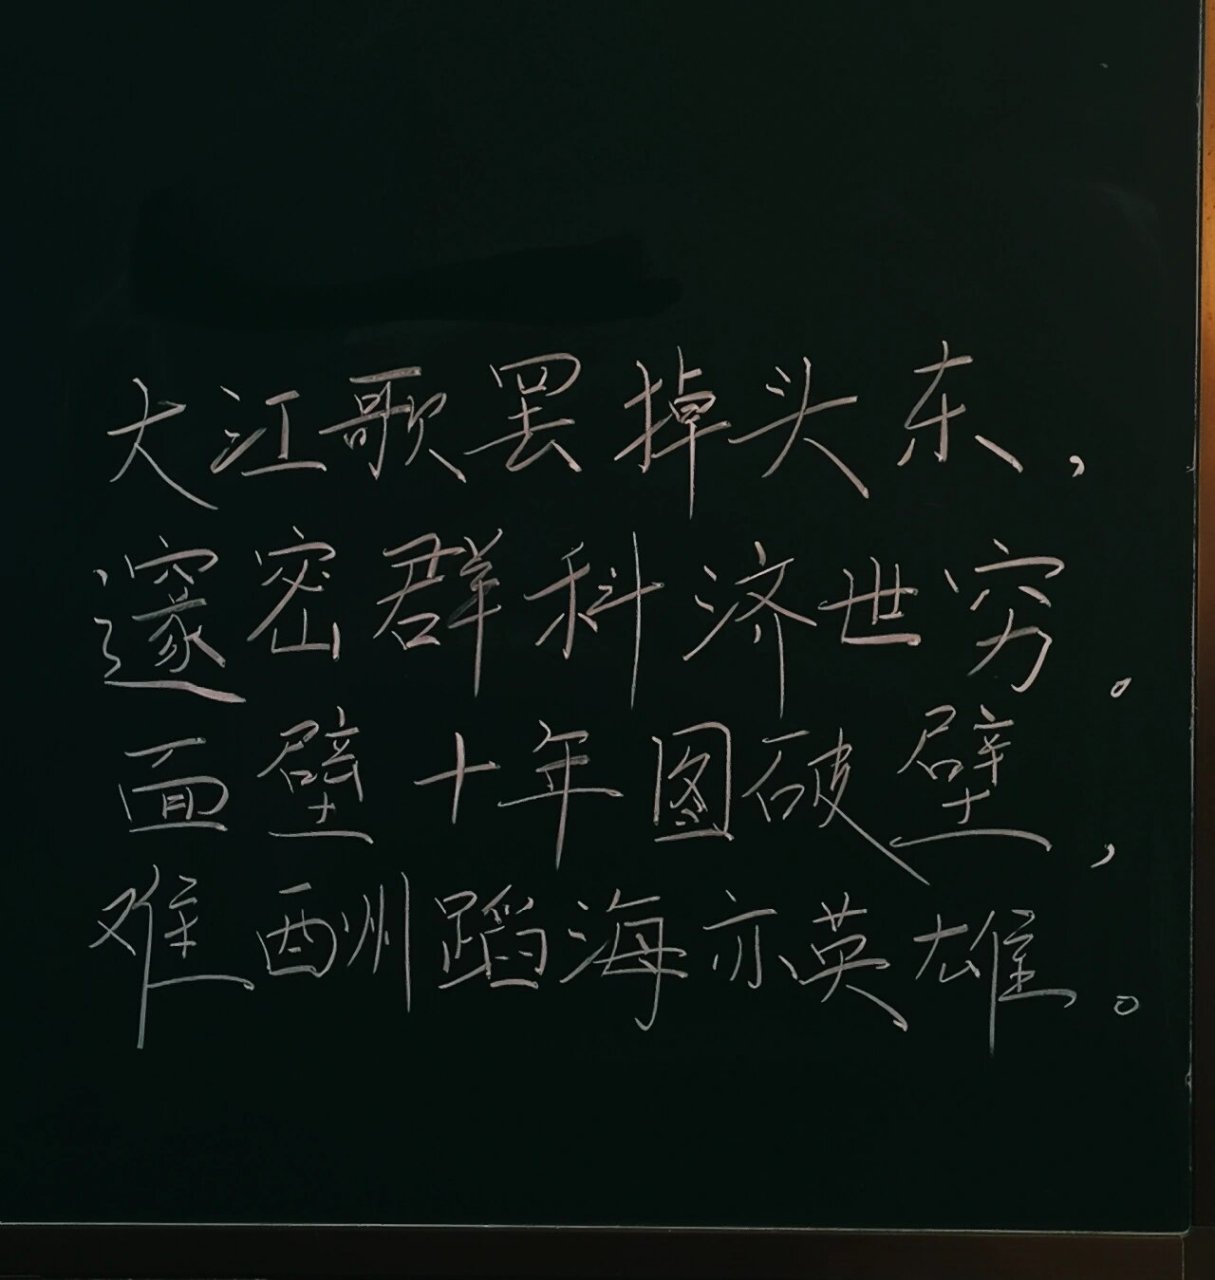 大江歌罢掉头东，
邃密群科济世穷。
面壁十年图破壁，
难酬蹈海亦英雄。